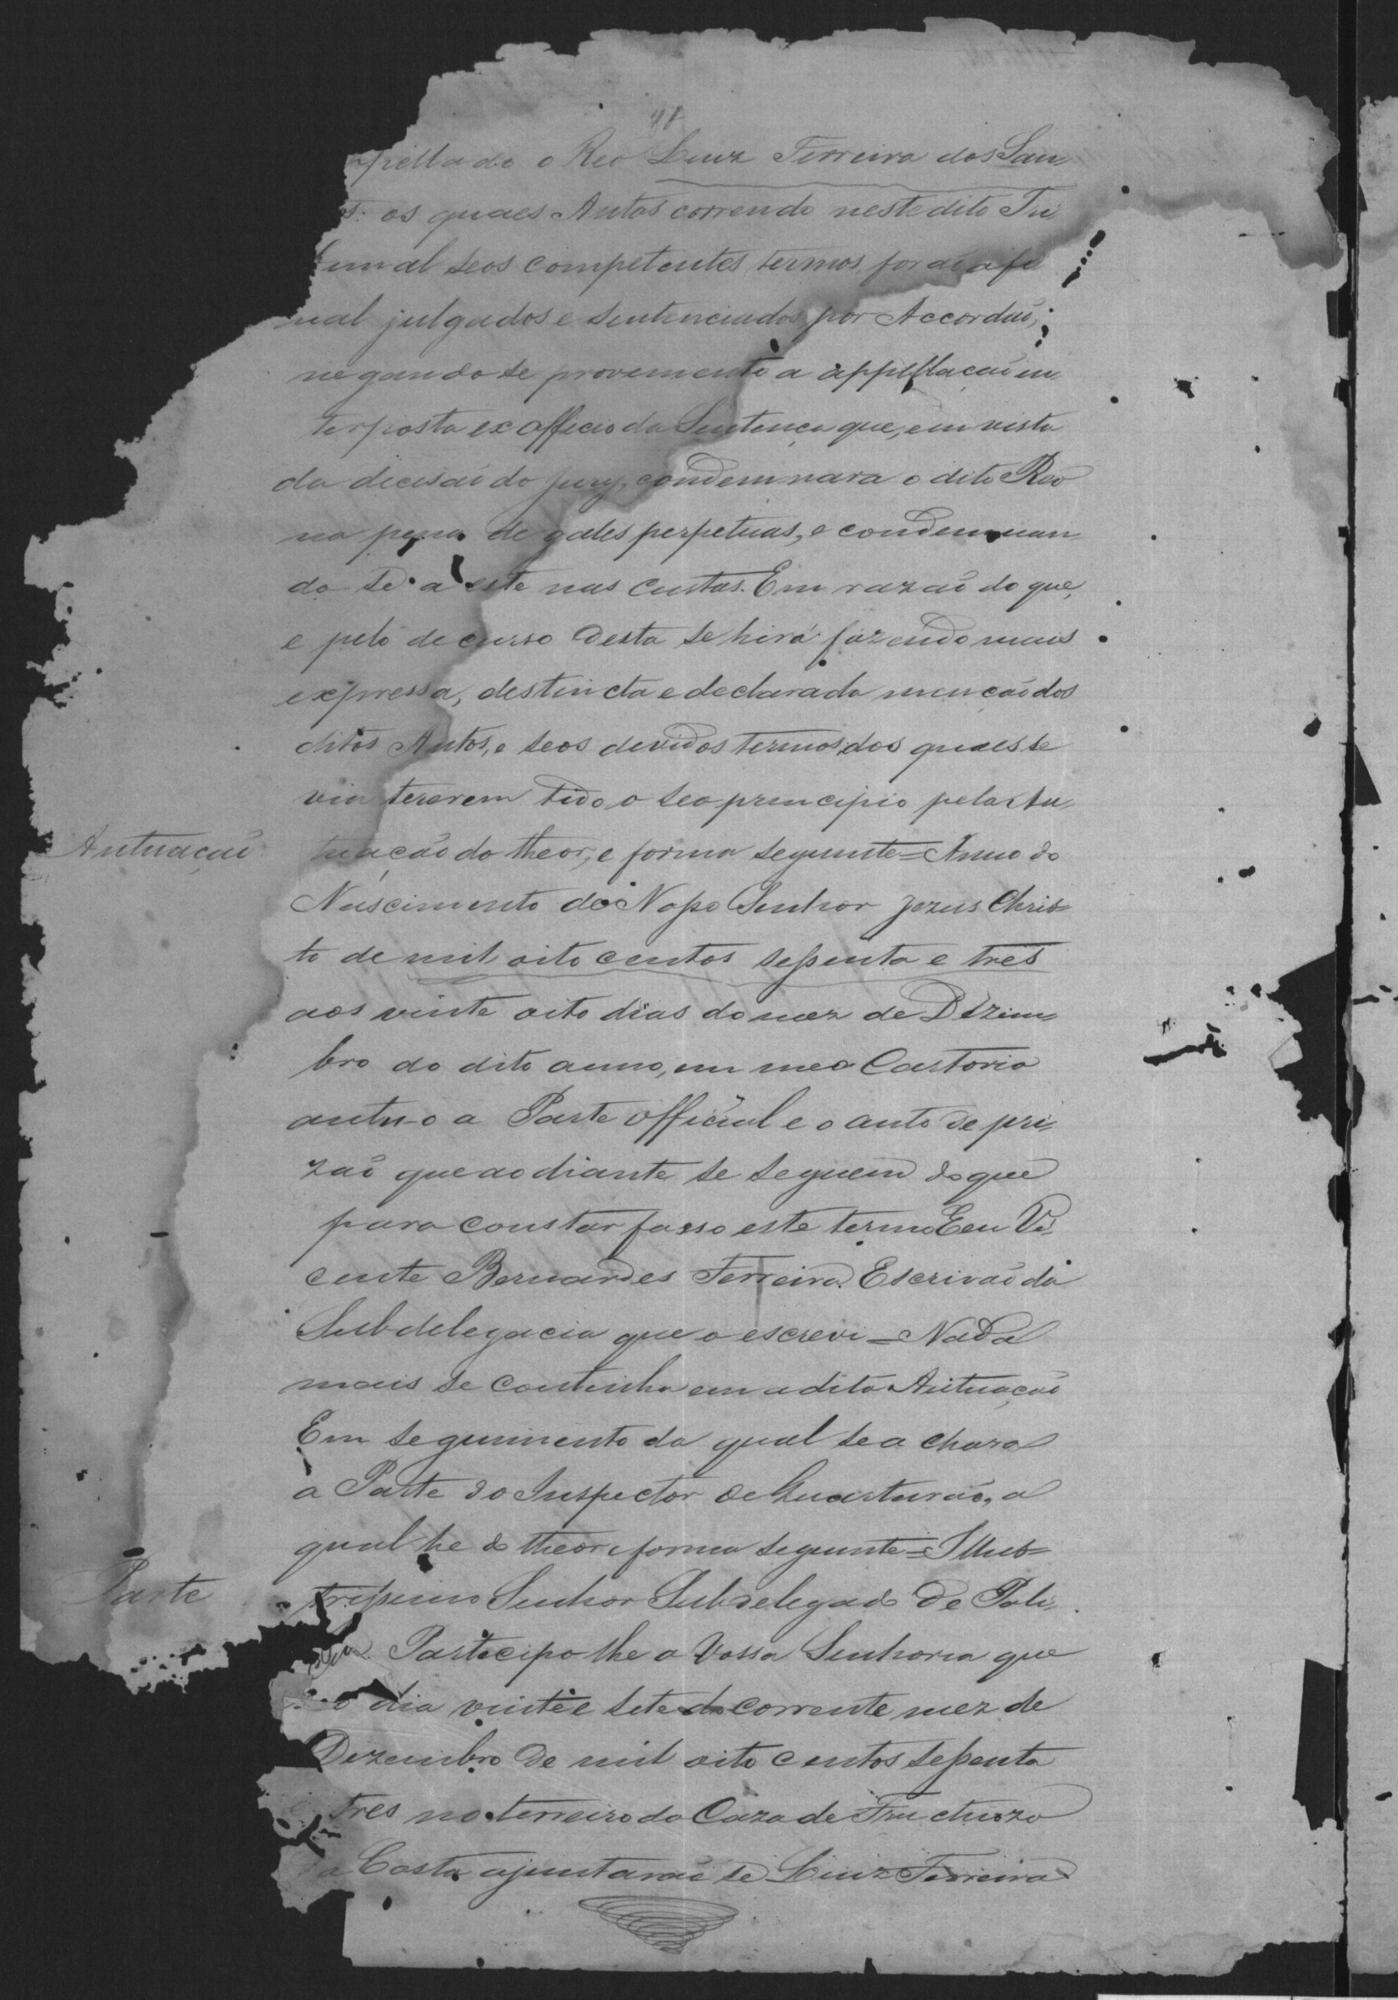 pellado o Reo Luiz Ferreira dos San=
s: os quaes Autos correndo neste dito Tri
bunal seos competentes termos foraõ afi
nal julgados e sentenciados por Accordaõ,
negando se provimento a appellaçaõ in
terposta ex officio da Sentença que, em vista
da decisaõ do jury, condemnara o dito Reo
na pena de gales perpetuas, e condemnan
do se a este nas custas. Em razaõ do que,
e pelo decurso desta se hirá fazendo mais
expressa, destincta e declarada mençaõ dos
ditos Autos, e seos devidos termos dos quaes se
via terem tido o seo principio pela Au=
Autuaçaõ
tuaçaõ do theor, e forma seguinte = Anno do
Nascimento de Nosso Senhor Jezus Chris=
to de mil oito centos sessenta e tres
aos vinte oito dias do mez de Dezem=
bro do dito anno, em meo Cartorio
autuo a Parte official e o auto de pri=
zaõ que ao diante se seguem do que
para constar fasso este termo Eeu Vi=
cente Bernardes Ferreira Escrivaõ da
Subdelegacia que o escrevi = Nada
mais se continha em a dita Autuaçaõ
Em seguimento da qual se achava
a Parte do Inspector de Quarteraõ, a
qual he do theor e forma seguinte = Illus=
Parte
trissimo Senhor Subdelegado de Poli=
cia Partecipo lhe a Vossa Senhoria que
o dia vinte e sete do corrente mez de
Dezembro de mil oito centos sessenta
tres no terreiro da Caza de
a Costa ajuntaraõ se Luiz Ferreira